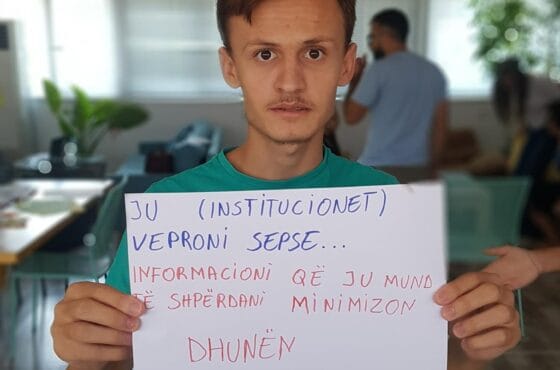 JU (INSTITUCIONET)
VEPRONI SEPSE...
INFORMACIONI QË JU MUND
TË SHPËRDANI MINIMIZON
DHUNËN